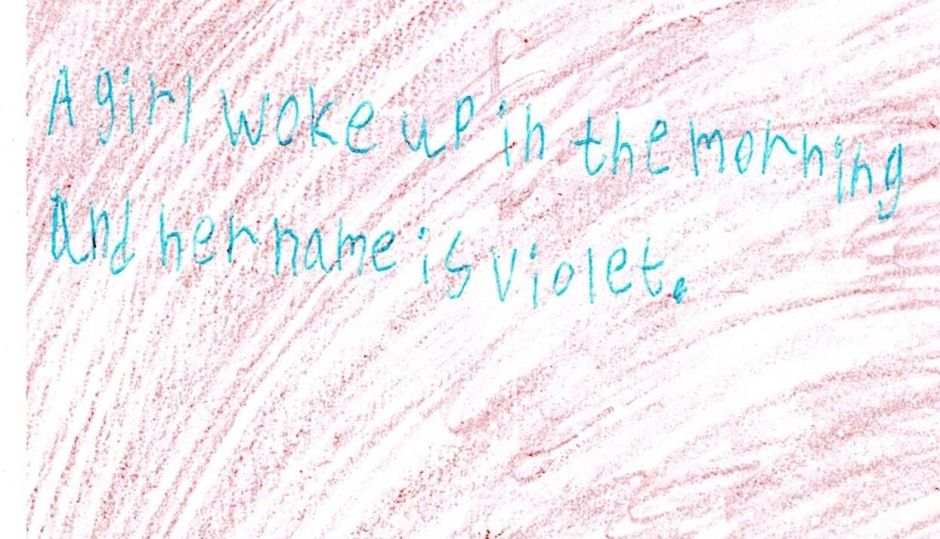 A girl woke up in the morning
And her name is Violet.